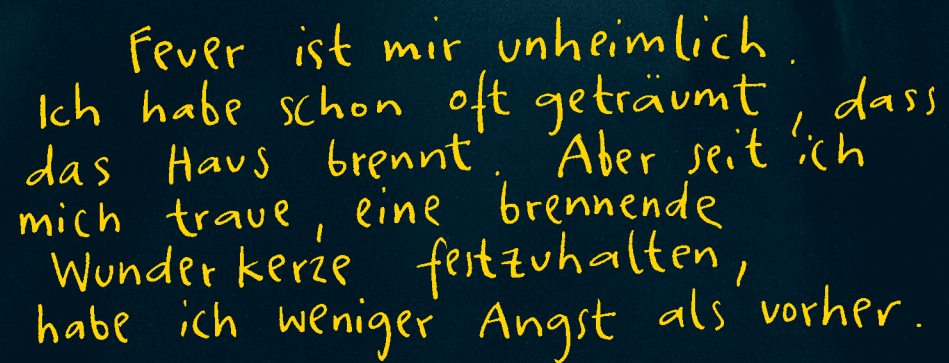 Feuer ist mir unheimlich.
Ich habe schon oft geträumt, dass
das Haus brennt. Aber seit ich
mich traue, eine brennende
Wunderkerze festzuhalten,
habe ich weniger Angst als vorher.